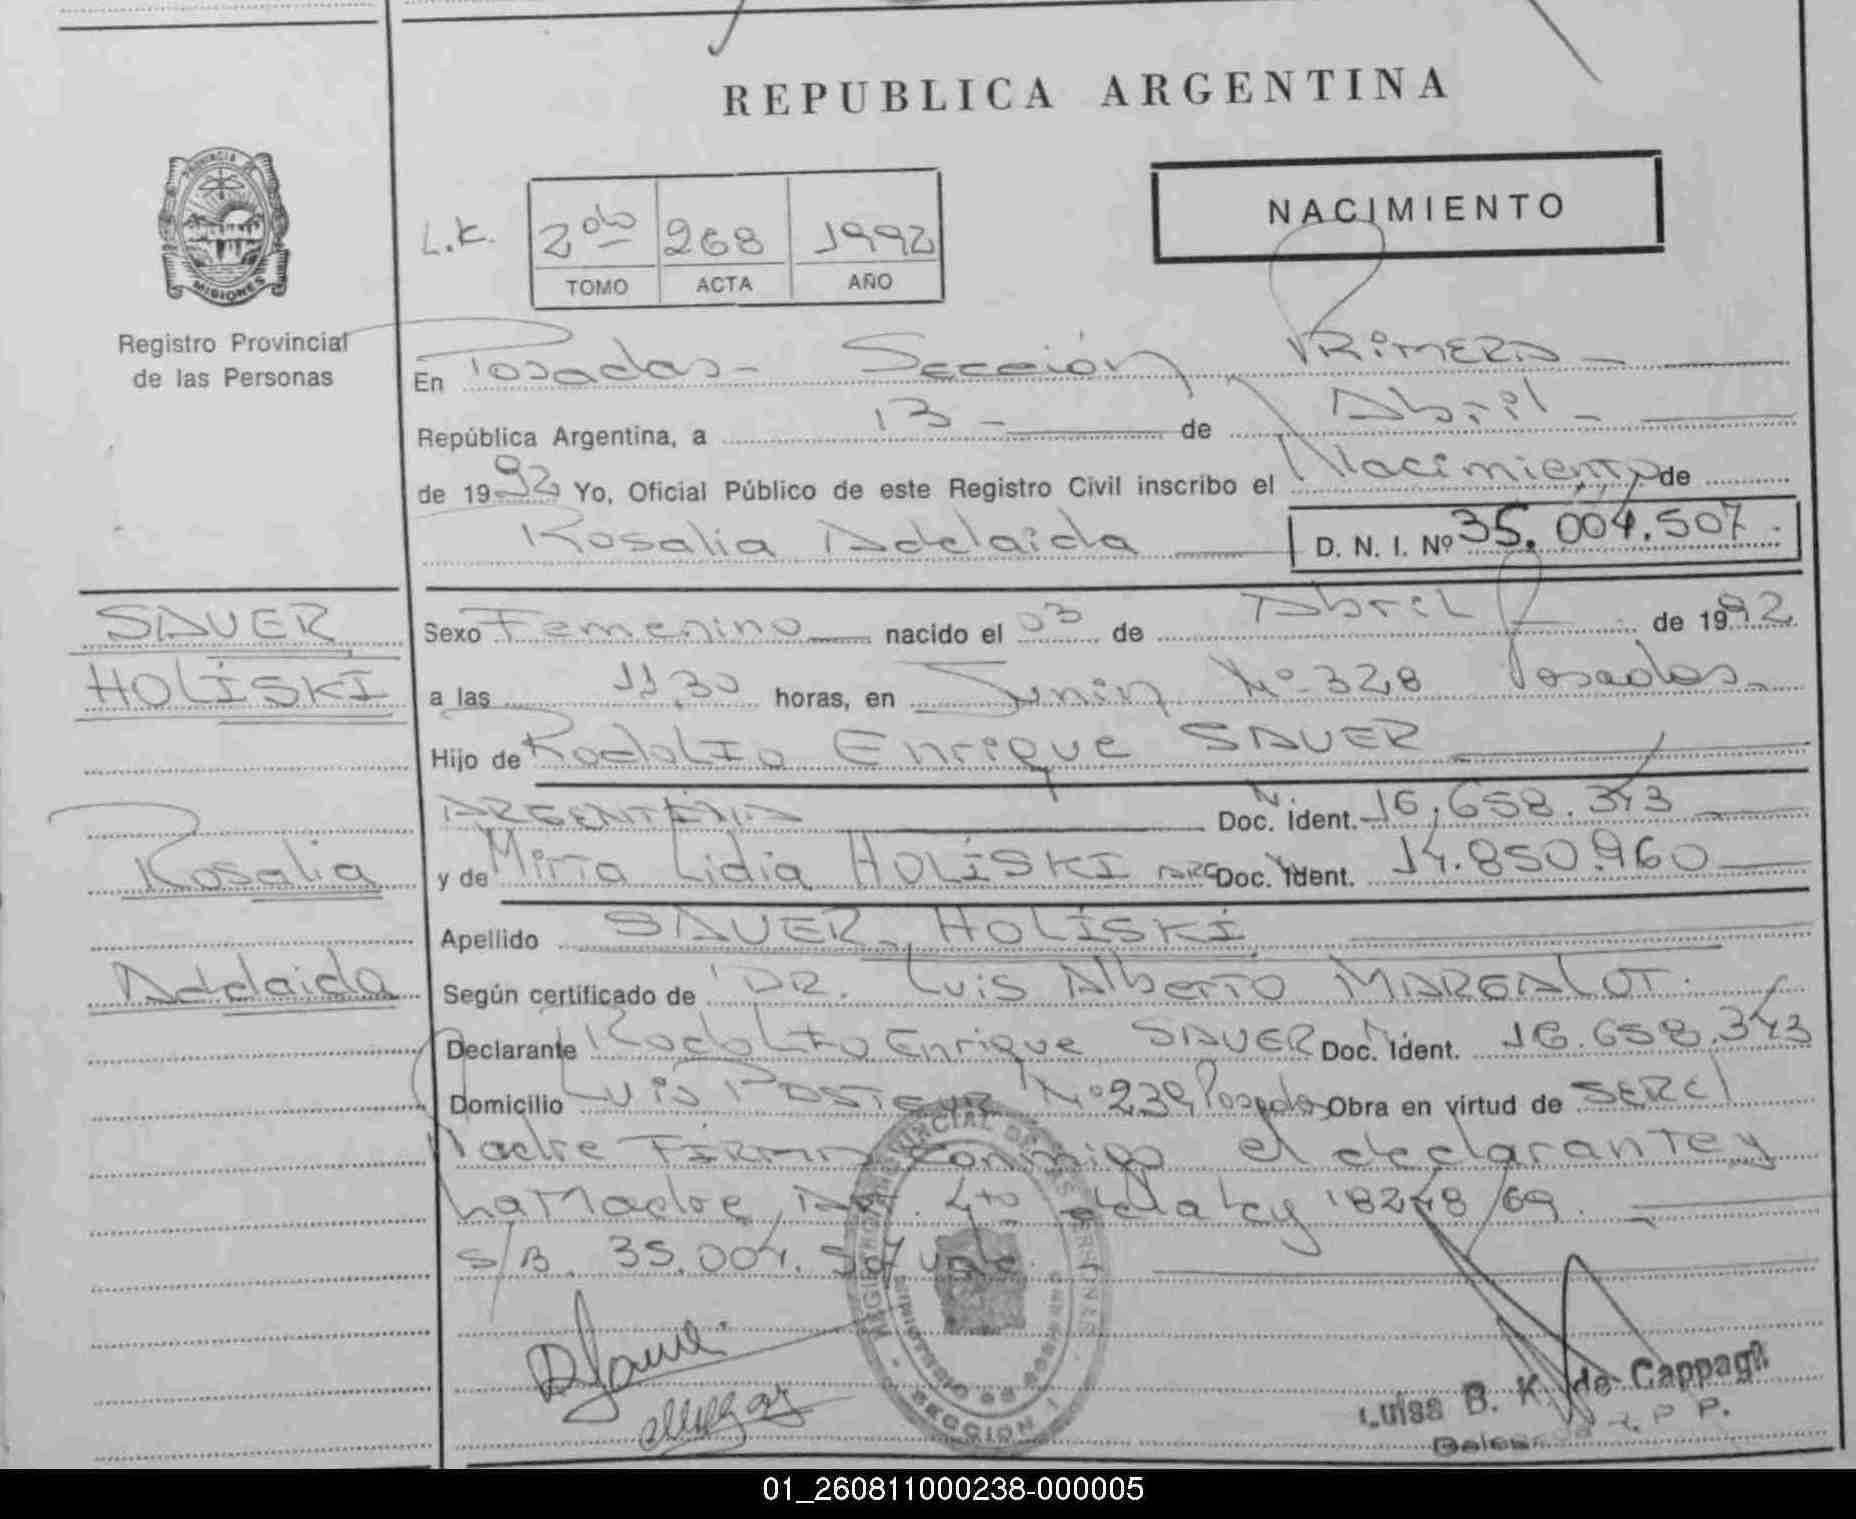 REPUBLICA ARGENTINA
PROVINCIA
MISIONES
Registro Provincial
de las Personas
NACIMIENTO
L.K. 2do 268 1992
TOMO ACTA AÑO
En Posadas - Sección PRIMERA -
República Argentina, a 13 - de Abril -
de 1992 Yo, Oficial Público de este Registro Civil inscribo el Nacimiento de
Rosalia Adelaida D. N. I. Nº 35.004.507.
SAUER
HOLISKI
Rosalia
Adelaida
Sexo Femenino nacido el 03 de Abril de 1992
a las 11,30 horas, en Junin Nº 328 Posadas
Hijo de Rodolfo Enrique SAUER
ARGENTINA Doc. Ident. 16.658.343
y de Mirta Lidia HOLISKI ARG Doc. Ident. 14.850.960
Apellido SAUER - HOLISKI
Según certificado de DR. Luis Alberto MARGALOT.
Declarante Rodolfo Enrique SAUER Doc. Ident. 16.658.343
Domicilio Luis Pasteur Nº 239 Posadas Obra en virtud de SER el
Padre FIRMA conmigo el declarante y
La Madre, Art. 4to de la Ley 18248/69.
S/B. 35.004.507 vale.
SECCION 1
Luisa B. K. de Cappagli
R. P. P.
01_260811000238-000005